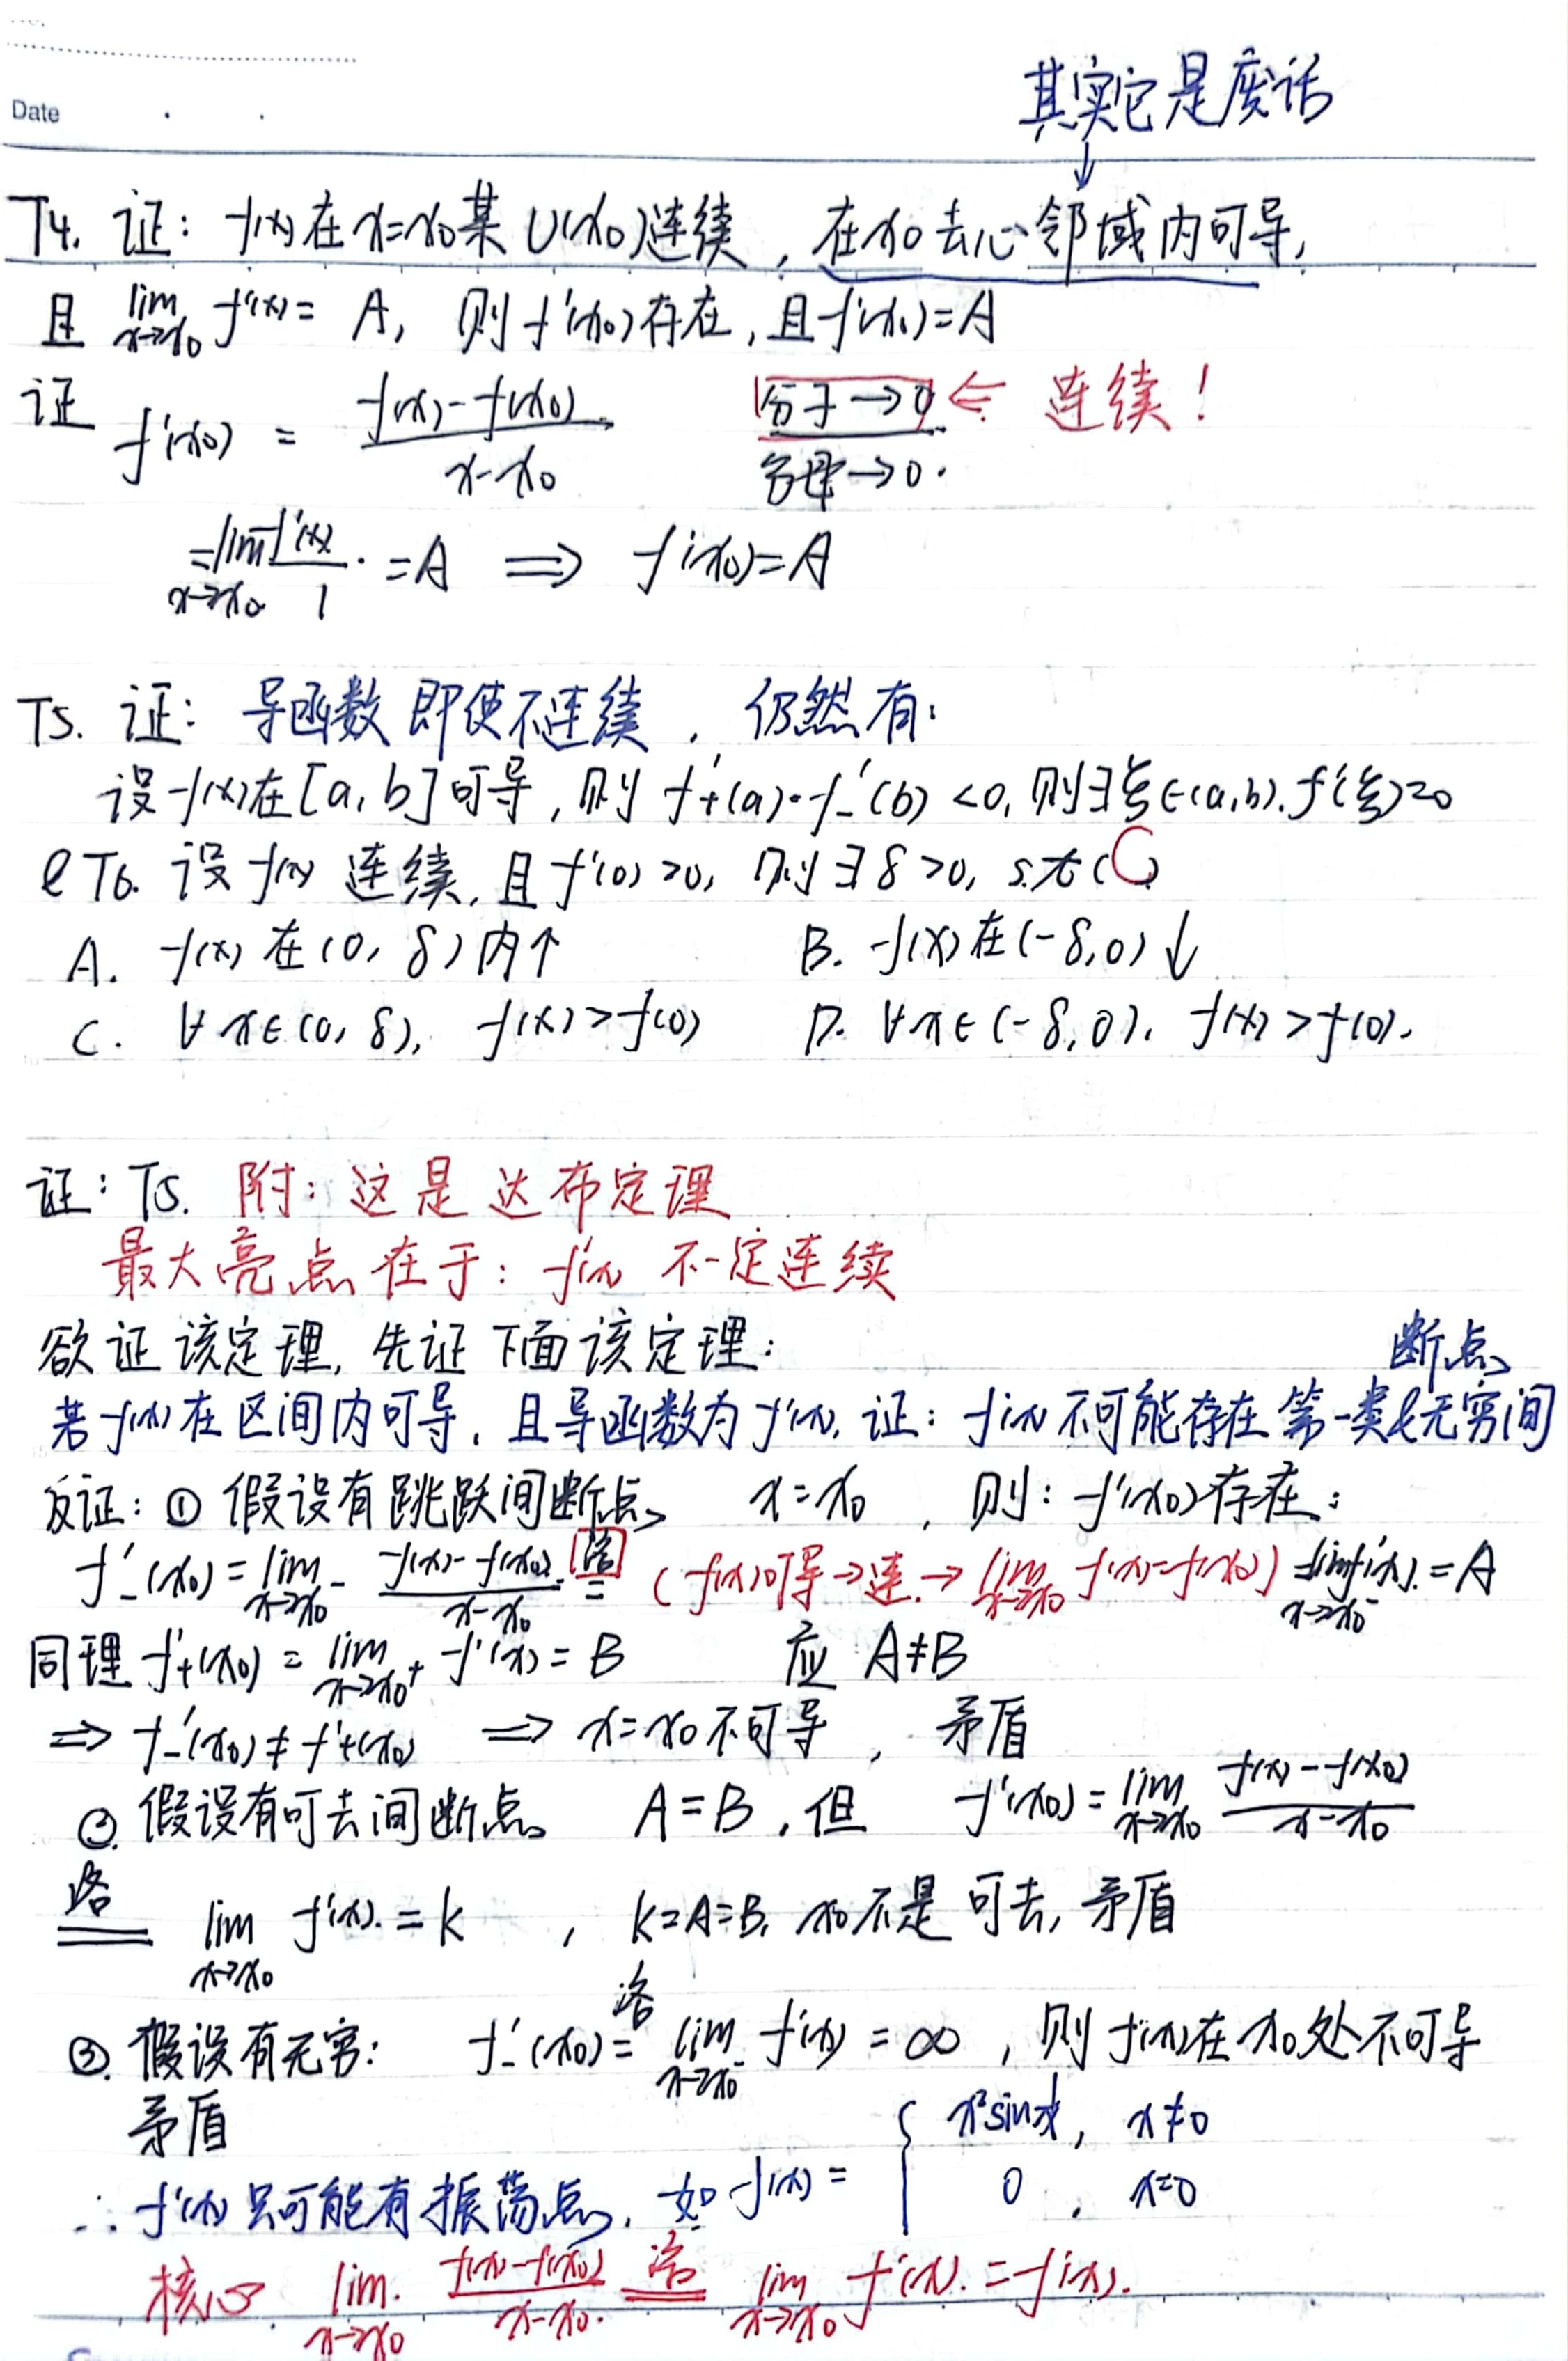 Date
其实它是废话
↓
T4. 证: f(x)在x=x₀某U(x₀)连续, 在x₀去心邻域内可导,
且 lim_{x→x₀} f'(x)= A, 则f'(x₀)存在,且f'(x₀)=A
证 f'(x₀) = (f(x)-f(x₀))/(x-x₀) 分子→0 ⇐ 连续!
分母→0.
=lim_{x→x₀} f'(x)/1 =A ⇒ f'(x₀)=A
T5. 证: 导函数即使不连续, 仍然有:
设f(x)在[a,b]可导,则f'₊(a)·f'₋(b)<0,则∃ξ∈(a,b).f'(ξ)=0
T6. 设f(x)连续,且f'(0)>0, 则∃δ>0, s.t.(C)
A. f(x)在(0,δ)内↑ B. f(x)在(-δ,0)↓
C. ∀x∈(0,δ), f(x)>f(0) D. ∀x∈(-δ,0). f(x)>f(0).
证: T5. 附: 这是达布定理
最大亮点在于: f'(x) 不一定连续
欲证该定理, 先证下面该定理:
断点
若f(x)在区间内可导, 且导函数为f'(x). 证: f'(x)不可能存在第一类&无穷间
反证: ① 假设有跳跃间断点 x=x₀, 则: f'(x₀)存在:
f'₋(x₀)=lim_{x→x₀⁻} (f(x)-f(x₀))/(x-x₀) 洛= (f(x)可导→连→lim_{x→x₀} f(x)=f(x₀)) =lim_{x→x₀⁻} f'(x).=A
同理f'₊(x₀)=lim_{x→x₀⁺} f'(x)=B 应A≠B
⇒ f'₋(x₀)≠f'₊(x₀) ⇒ x=x₀不可导, 矛盾
② 假设有可去间断点 A=B, 但 f'(x₀)=lim_{x→x₀} (f(x)-f(x₀))/(x-x₀)
洛= lim_{x→x₀} f'(x).=k, k=A=B, x₀不是可去, 矛盾
③ 假设有无穷: f'₋(x₀) 洛= lim_{x→x₀⁻} f'(x)=∞, 则f(x)在x₀处不可导
矛盾
∴f'(x)只可能有振荡点, 如f(x)= { x²sin1/x, x≠0
0, x=0
核心 lim_{x→x₀} (f(x)-f(x₀))/(x-x₀) 洛= lim_{x→x₀} f'(x).=f'(x).